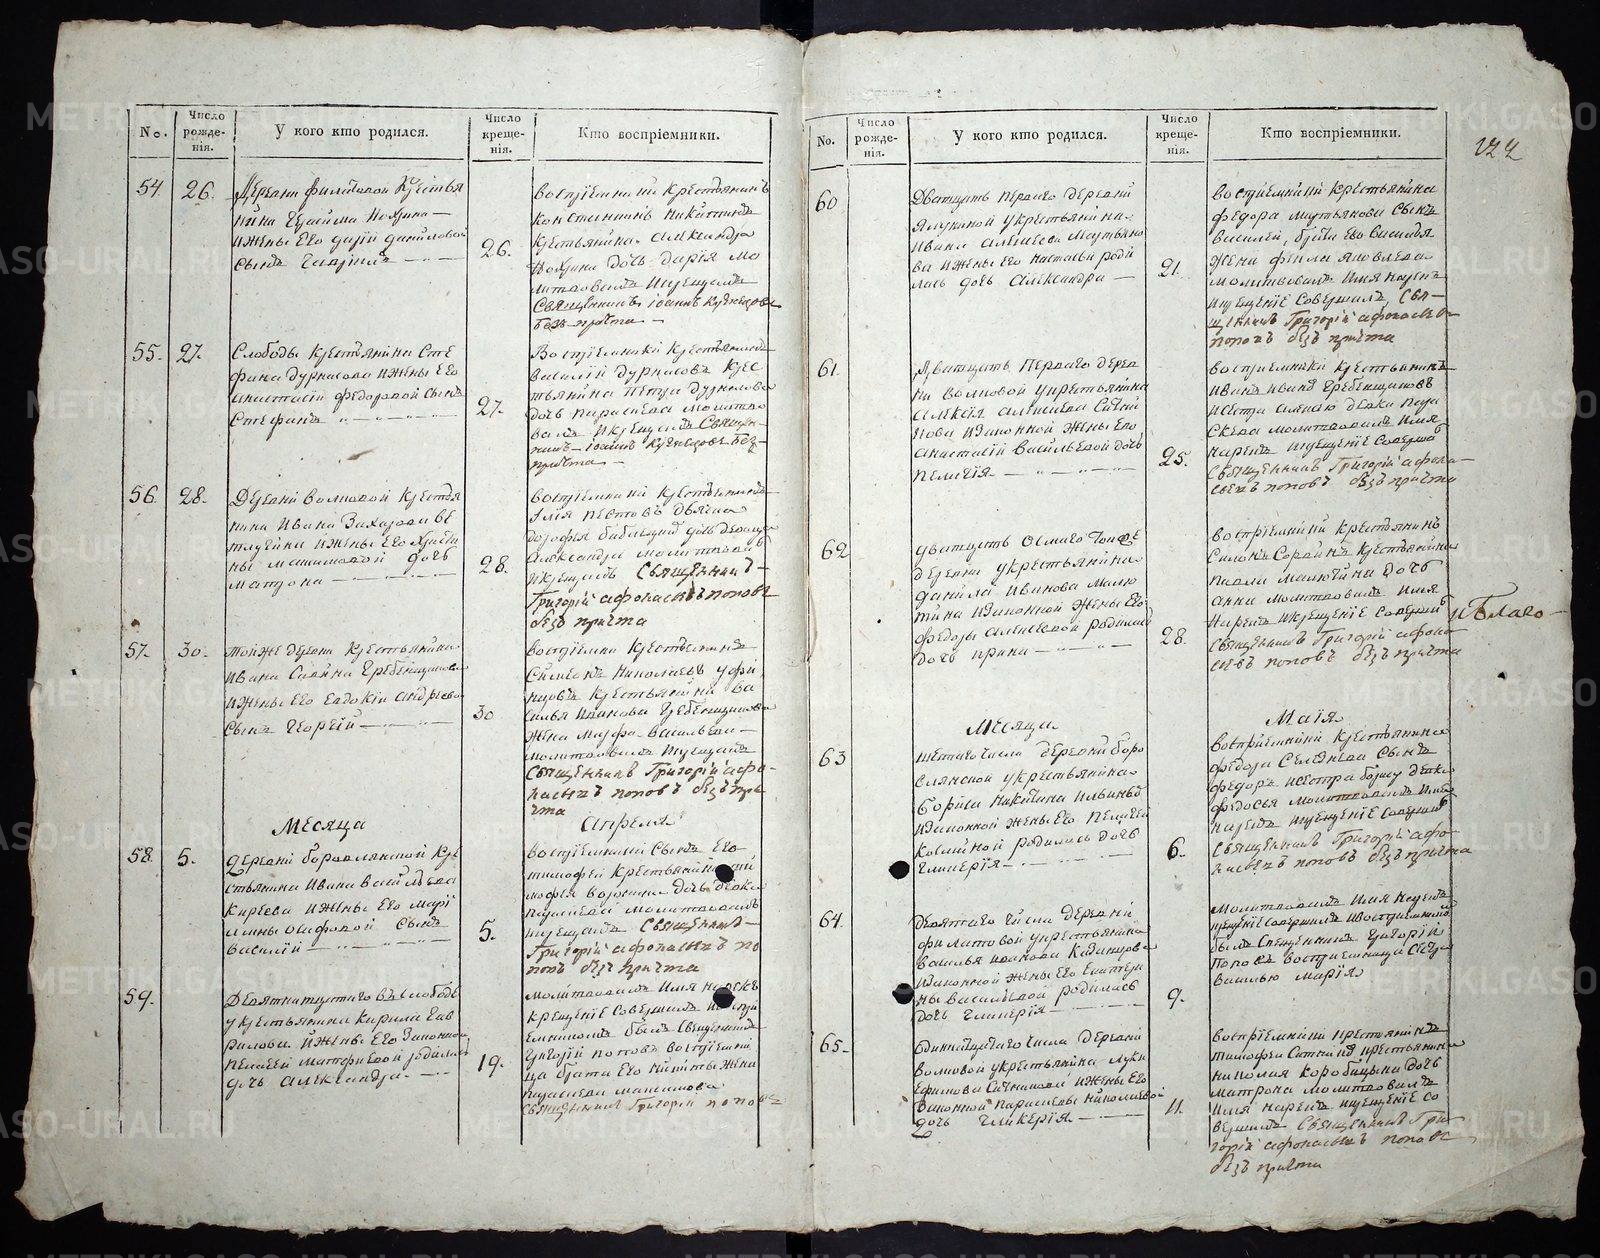 No.
Число рожде-нія.
У кого кто родился.
Число креще-нія.
Кто воспріемники.
54
26.
Деревни Филатовой Крестья
нина Герасима
и жены Его Даріи Даниловой
сынъ Гавріилъ
26.
воспріемники крестьянинъ
Константинъ Никитинъ
Крестьянина Александра
дочь Дарія мо
литвовалъ и крещалъ
Священникъ Іоаннъ Кузнецовъ
безъ причта
55.
27.
Слободы Крестьянина Сте
фана Дурнасова и жены Его
Анастасіи Федоровой сынъ
Стефанъ
27.
Воспріемники крестьянинъ
Василій Дурнасовъ Крес
тьянина Петра Дурнасова
дочь Параскева молитво
валъ и крещалъ Священ
никъ Іоаннъ Кузнецовъ безъ
причта
56.
28.
Деревни Волковой Крестья
нина Ивана Захарова Ве
и жены Его Христи
ны Максимовой дочь
Матрона
28.
воспріемники крестьянинъ
Илія Певтовъ
дочь девица
Александра молитвовалъ
и крещалъ Священникъ
Григорій Афонасьевъ Поповъ
безъ причта
57.
30.
Той же деревни Крестьянина
Ивана Саввина Гребенщикова
и жены Его Евдокіи Андреевой
сынъ Георгій
30
воспріемники Крестьянинъ
Симеонъ Николаевъ
Крестьянина Ва
силья Иванова Гребенщикова
жена Марфа Васильева
молитвовалъ и крещалъ
священникъ Григорій Афо-
насьевъ Поповъ безъ при
чта
Месяца
Апреля
58.
5.
Деревни Боровлянской Кре
стьянина Ивана Васильева
Киреева и жены Его Марі
амны Осиповой сынъ
Василій
5.
воспріемники сынъ Его
Тимофей Крестьянина
дочь девка
Параскева молитвовалъ
и крещалъ Священникъ
Григорій Афонасьевъ По
повъ безъ причта
59.
Девятнатцатаго въ Слободе
у крестьянина Кирила Гав
рилова и жены Его Законной
Пелагеи Матфиевой родилась
дочь Александра
19.
молитвовалъ имя нарекъ
крещеніе совершалъ и воспри
емникомъ былъ Священникъ
Григорій Поповъ воспріемни
ца брата Его Никиты жена
Параскева Максимова
Священникъ Григорій Поповъ
No.
Число рожде-нія.
У кого кто родился.
Число креще-нія.
Кто воспріемники.
122
60
Дватцать перваго деревни
Ялуниной у крестьянина
Ивана Алексеева Мартьяно
ва и жены Его Настасьи роди
лась дочь Александра
21.
воспріемники крестьянина
Федора Мартьянова сынъ
Василей, брата Его Василья
жена Фекла Яковлева
молитвовалъ имя нарекъ
и крещеніе совершилъ, Свя-
щенникъ Григорій Афонасьевъ
Поповъ безъ причта
61.
Дватцать перваго дерев
ни Волковой у крестьянина
Алексея Алексеева Ситни
кова и законной жены Его
Анастасіи Васильевой дочь
Пелагія
25.
воспріемники крестьянинъ
Иванъ Ивановъ Гребенщиковъ
и сестра Алексею девка Пара
скева молитвовалъ имя
нарекъ и крещеніе совершилъ
Священникъ Григорій Афона-
сьевъ Поповъ безъ причта
62
Дватцать осмаго той же
деревни у крестьянина
Данила Иванова Малю
тина и законной жены Его
Федоры Алексеевой родилась
дочь Ирина
28.
воспріемники крестьянинъ
Крестьянина
Павла Малютина дочь
Анна молитвовалъ имя
нарекъ и крещеніе совершилъ
Священникъ Григорій Афона-
сьевъ Поповъ безъ причта
и благо
Месяца
Маія
63
шестаго числа деревни Боро
влянской у крестьянина
Бориса Никитина
и законной жены Его Пелагеи
Космовной родилась дочь
Гликерія
6.
воспріемники крестьянина
Федора Селезнева сынъ
Федоръ и сестра Борису девка
Федосья молитвовалъ имя
нарекъ и крещеніе совершилъ
Священникъ Григорій Афо-
насьевъ Поповъ безъ причта
64.
Девятаго числа деревни
Филатовой у крестьянина
Василья Иванова Казанцова
и законной жены Его Екатери
ны Васильевой родилась
дочь Гликерія
9.
Молитвовалъ имя нарекъ
крещеніе совершилъ и воспріемникомъ
былъ Священникъ Григорій
Поповъ воспріемница сестра
Василью Марія
65.
Одиннатцатаго числа деревни
Волковой у крестьянина Луки
Ефимова Ситникова и жены Его
законной Параскевы Николаевой
дочь Гликерія
11.
воспріемники крестьянинъ
Тимофей Ситниковъ крестьянина
Николая Коробицына дочь
Матрона молитвовалъ
имя нарекъ и крещеніе со
вершилъ Священникъ Гри-
горій Афонасьевъ Поповъ
безъ причта